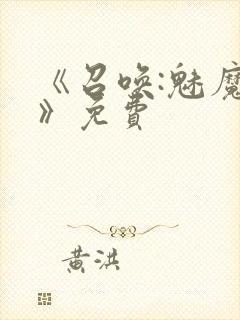 《召唤:魅魔
》免费
黄洪